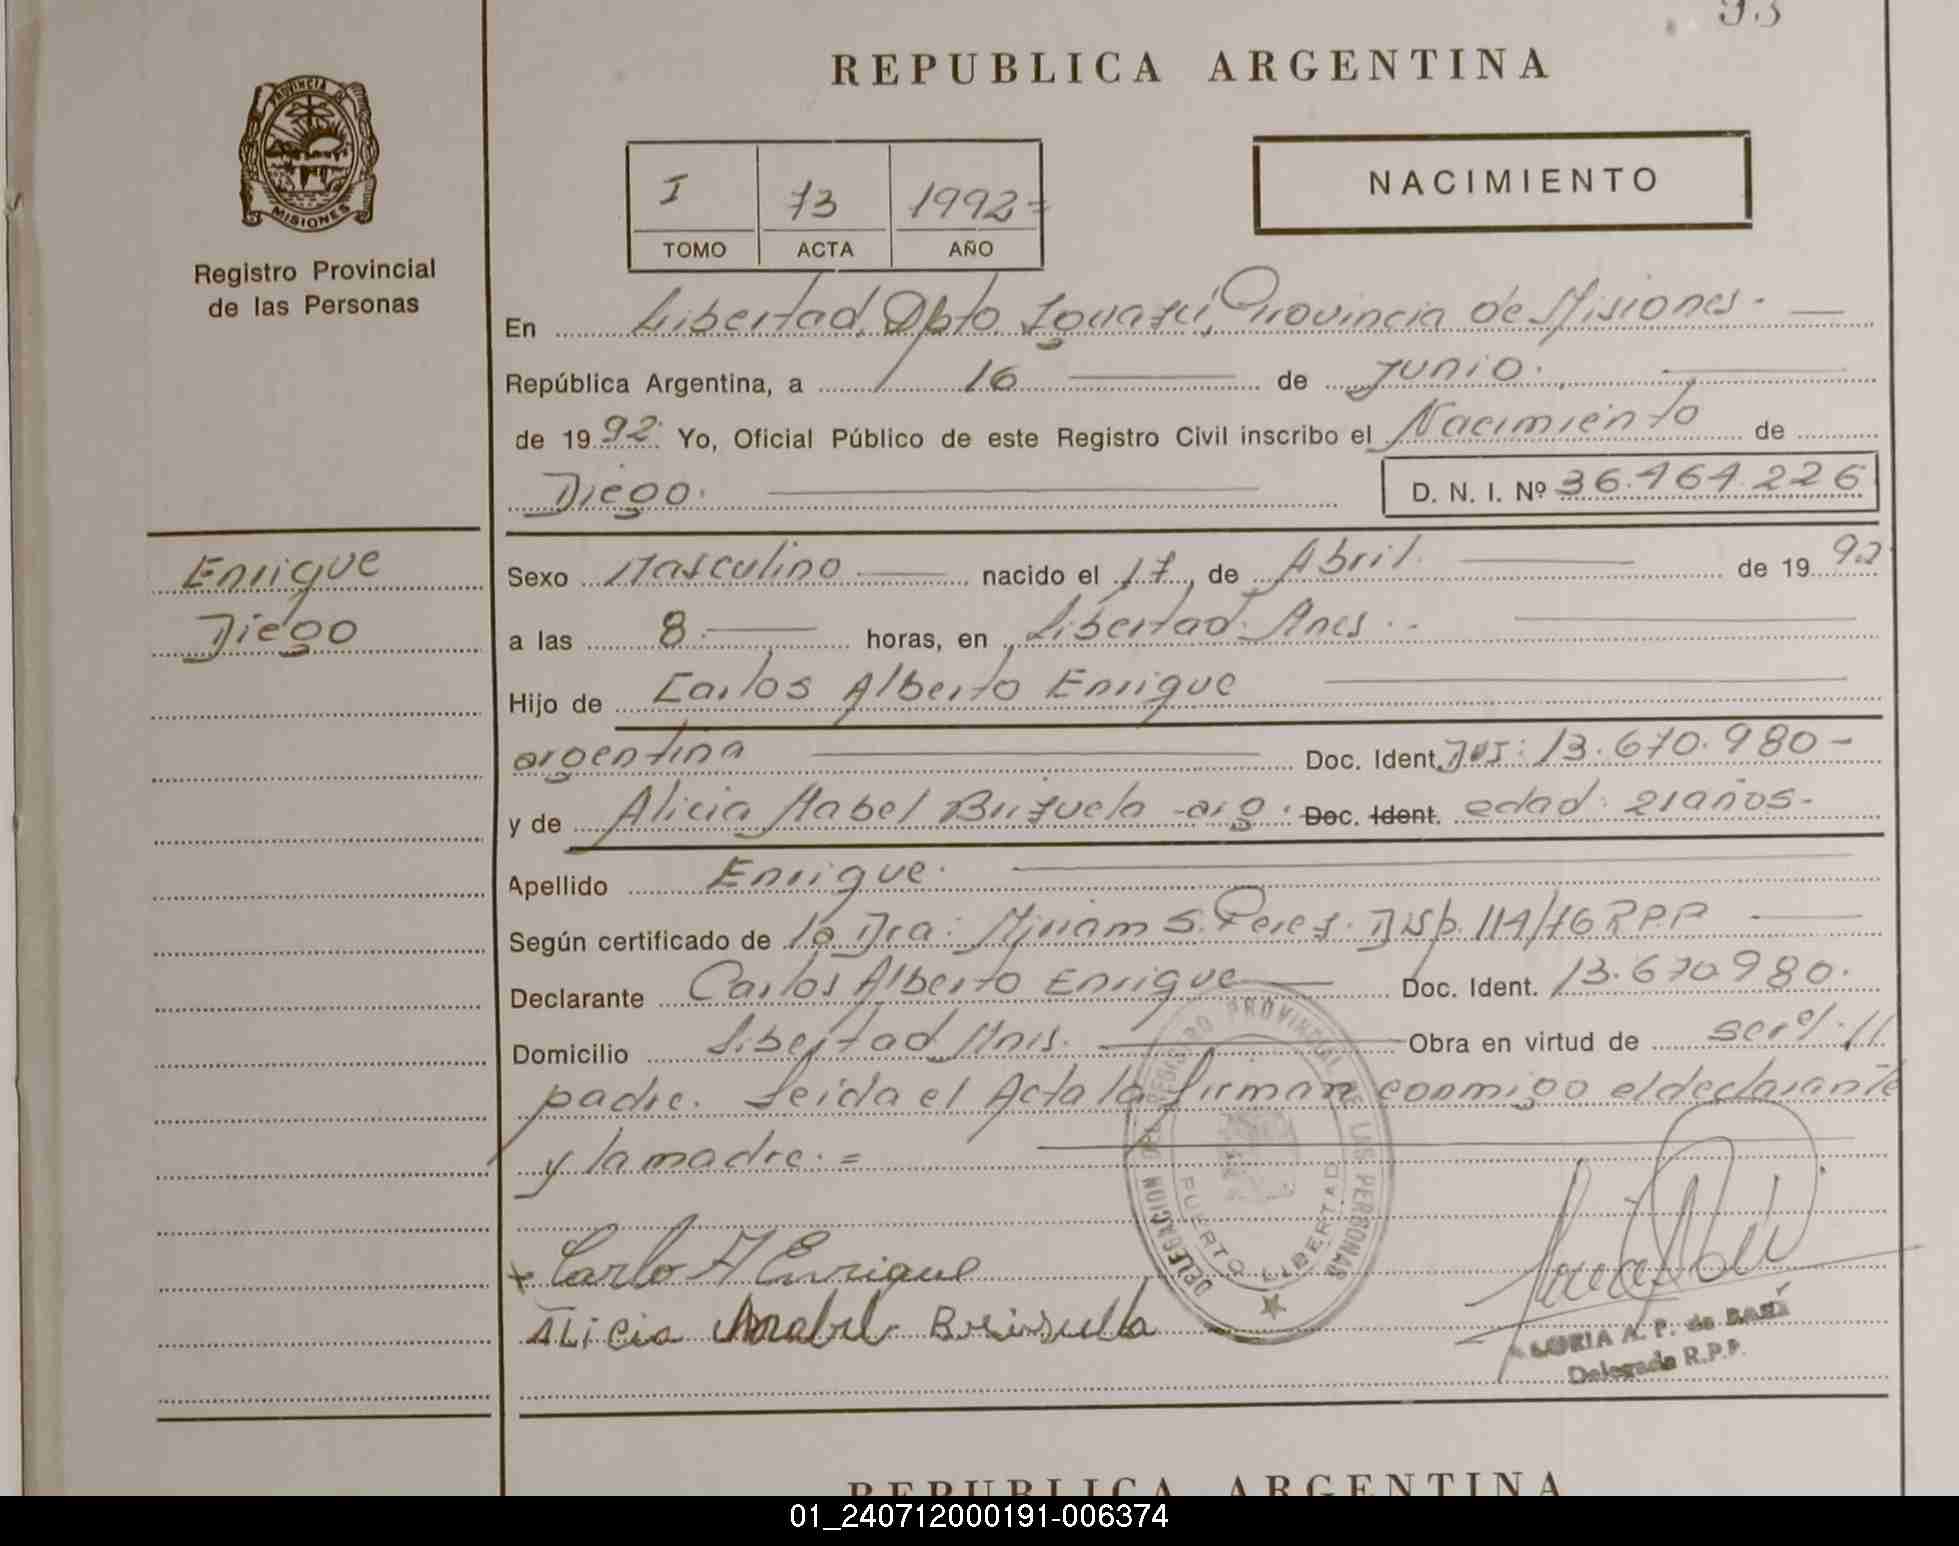 93
REPUBLICA ARGENTINA
PROVINCIA DE
MISIONES
Registro Provincial
de las Personas
I 73 1992=
TOMO ACTA AÑO
NACIMIENTO
En Libertad, Dpto Iguazú, Provincia de Misiones.-
República Argentina, a 16 de Junio.
de 1992. Yo, Oficial Público de este Registro Civil inscribo el Nacimiento de
Diego. D. N. I. Nº 36.464.226
Enrique
Diego
Sexo Masculino nacido el 17 de Abril. de 1992
a las 8.- horas, en Libertad. Mnes.
Hijo de Carlos Alberto Enrique
argentina Doc. Ident. DNI: 13.670.980-
y de Alicia Mabel Brizuela -arg. Doc. Ident. edad: 21 años-
Apellido Enrique.
Según certificado de la Dra: Myriam S. Perez. Disp. 114/76 R.P.P
Declarante Carlos Alberto Enrique Doc. Ident. 13.670.980.
Domicilio Libertad Mnes. Obra en virtud de ser el //
padre. Leida el Acta la firman conmigo el declarante
y la madre.=
DELEGACION DEL REGISTRO PROVINCIAL DE LAS PERSONAS
PUERTO LIBERTAD
Carlo A Enrique
ALicia Mabel
LORIA A. P. de
Delegada R.P.P.
REPUBLICA ARGENTINA
01_240712000191-006374